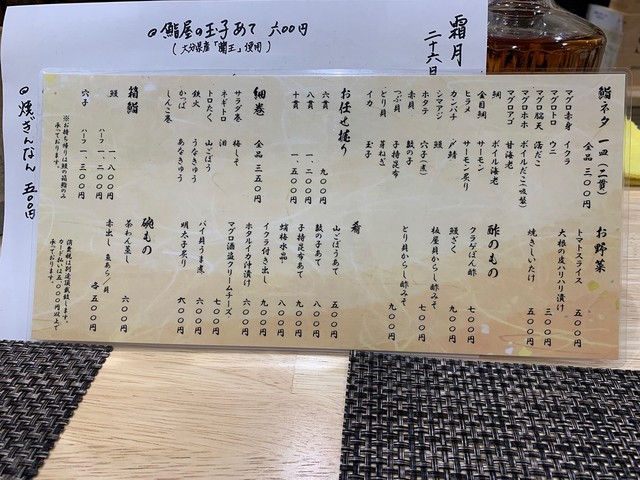 霜月
二十六日
◎鮨屋の玉子あて 六〇〇円
(大分県産「蘭王」使用)
◎焼ぎんなん 五〇〇円
鮨ネタ 一皿(二貫)
全品 三〇〇円
マグロ赤身 イクラ
マグロトロ ウニ
マグロ脳天 活だこ
マグロホホ ボイルだこ(吸盤)
マグロアゴ 甘海老
鯛 ボイル海老
金目鯛 サーモン
ヒラメ サーモン炙り
カンパチ 〆鯖
シマアジ 鰻
ホタテ 穴子(煮)
赤貝 数の子
つぶ貝 子持昆布
とり貝 芽ねぎ
イカ 玉子
お任せ握り
六貫 九〇〇円
八貫 一、二〇〇円
十貫 一、五〇〇円
細巻 全品 三五〇円
サラダ巻 梅しそ
ネギトロ 泪
トロたく 山ごぼう
鉄火 うなきゅう
かっぱ あなきゅう
しんこ巻
箱鮨
鰻 一、八〇〇円
ハーフ 一、二〇〇円
穴子
ハーフ 一、三〇〇円
※お持ち帰りは鰻の箱鮨のみ
承っております。
お野菜
トマトスライス 五〇〇円
大根の皮ハリハリ漬け 三〇〇円
焼きしいたけ 五〇〇円
酢のもの
クラゲぽん酢 七〇〇円
鰻ざく 九〇〇円
板屋貝からし酢みそ 七〇〇円
とり貝からし酢みそ 九〇〇円
肴
山ごぼうあて 五〇〇円
数の子あて 九〇〇円
子持昆布あて 九〇〇円
蛸梅水晶 八〇〇円
イクラ付き出し 九〇〇円
ホタルイカ沖漬け 六〇〇円
マグロ酒盗クリームチーズ 七〇〇円
バイ貝うま煮 六〇〇円
明太子炙り 六〇〇円
碗もの
茶わん蒸し 六〇〇円
赤出し 魚あら/貝 各五〇〇円
消費税は別途頂戴致します。
カード払いは五、〇〇〇円以上で
承っております。